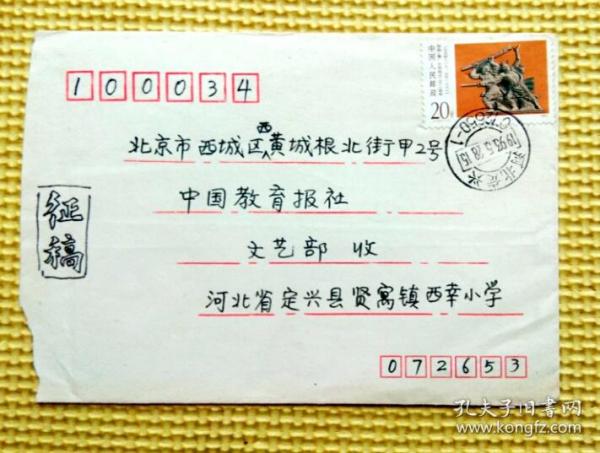 100034
中国人民邮政
20分
北京市西城区西黄城根北街甲2号
中国教育报社
文艺部 收
河北省定兴县贤寓镇西幸小学
072653
征稿
河北定兴
孔夫子旧书网
www.kongfz.com